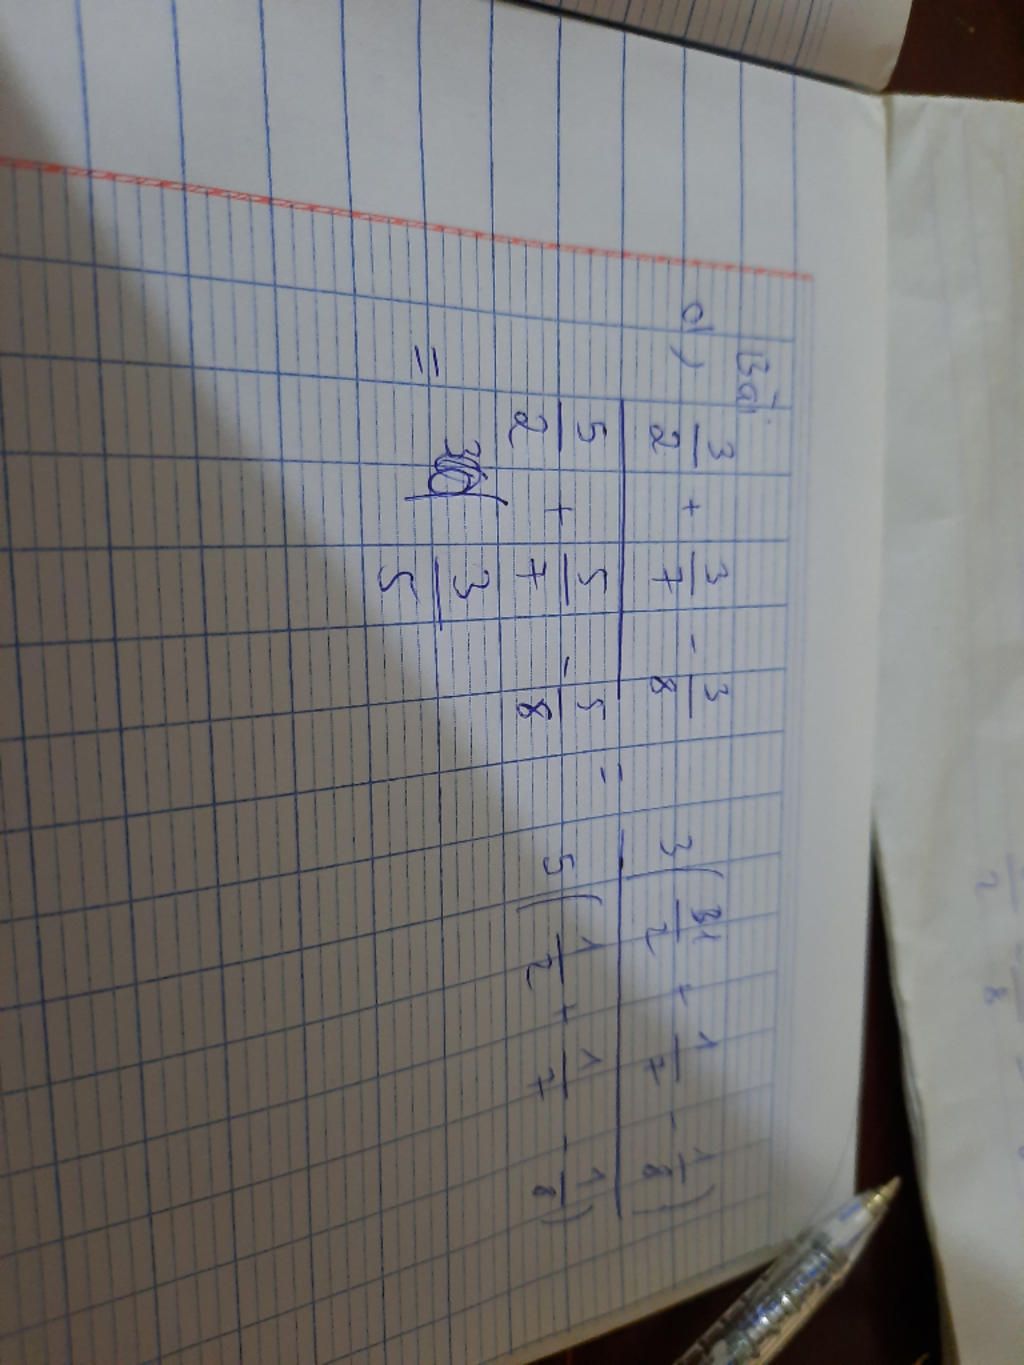 Bài
d) 3/2 + 3/7 - 3/8 / 5/2 + 5/7 - 5/8 = 3(1/2 + 1/7 - 1/8) / 5(1/2 + 1/7 - 1/8)
= 3/5